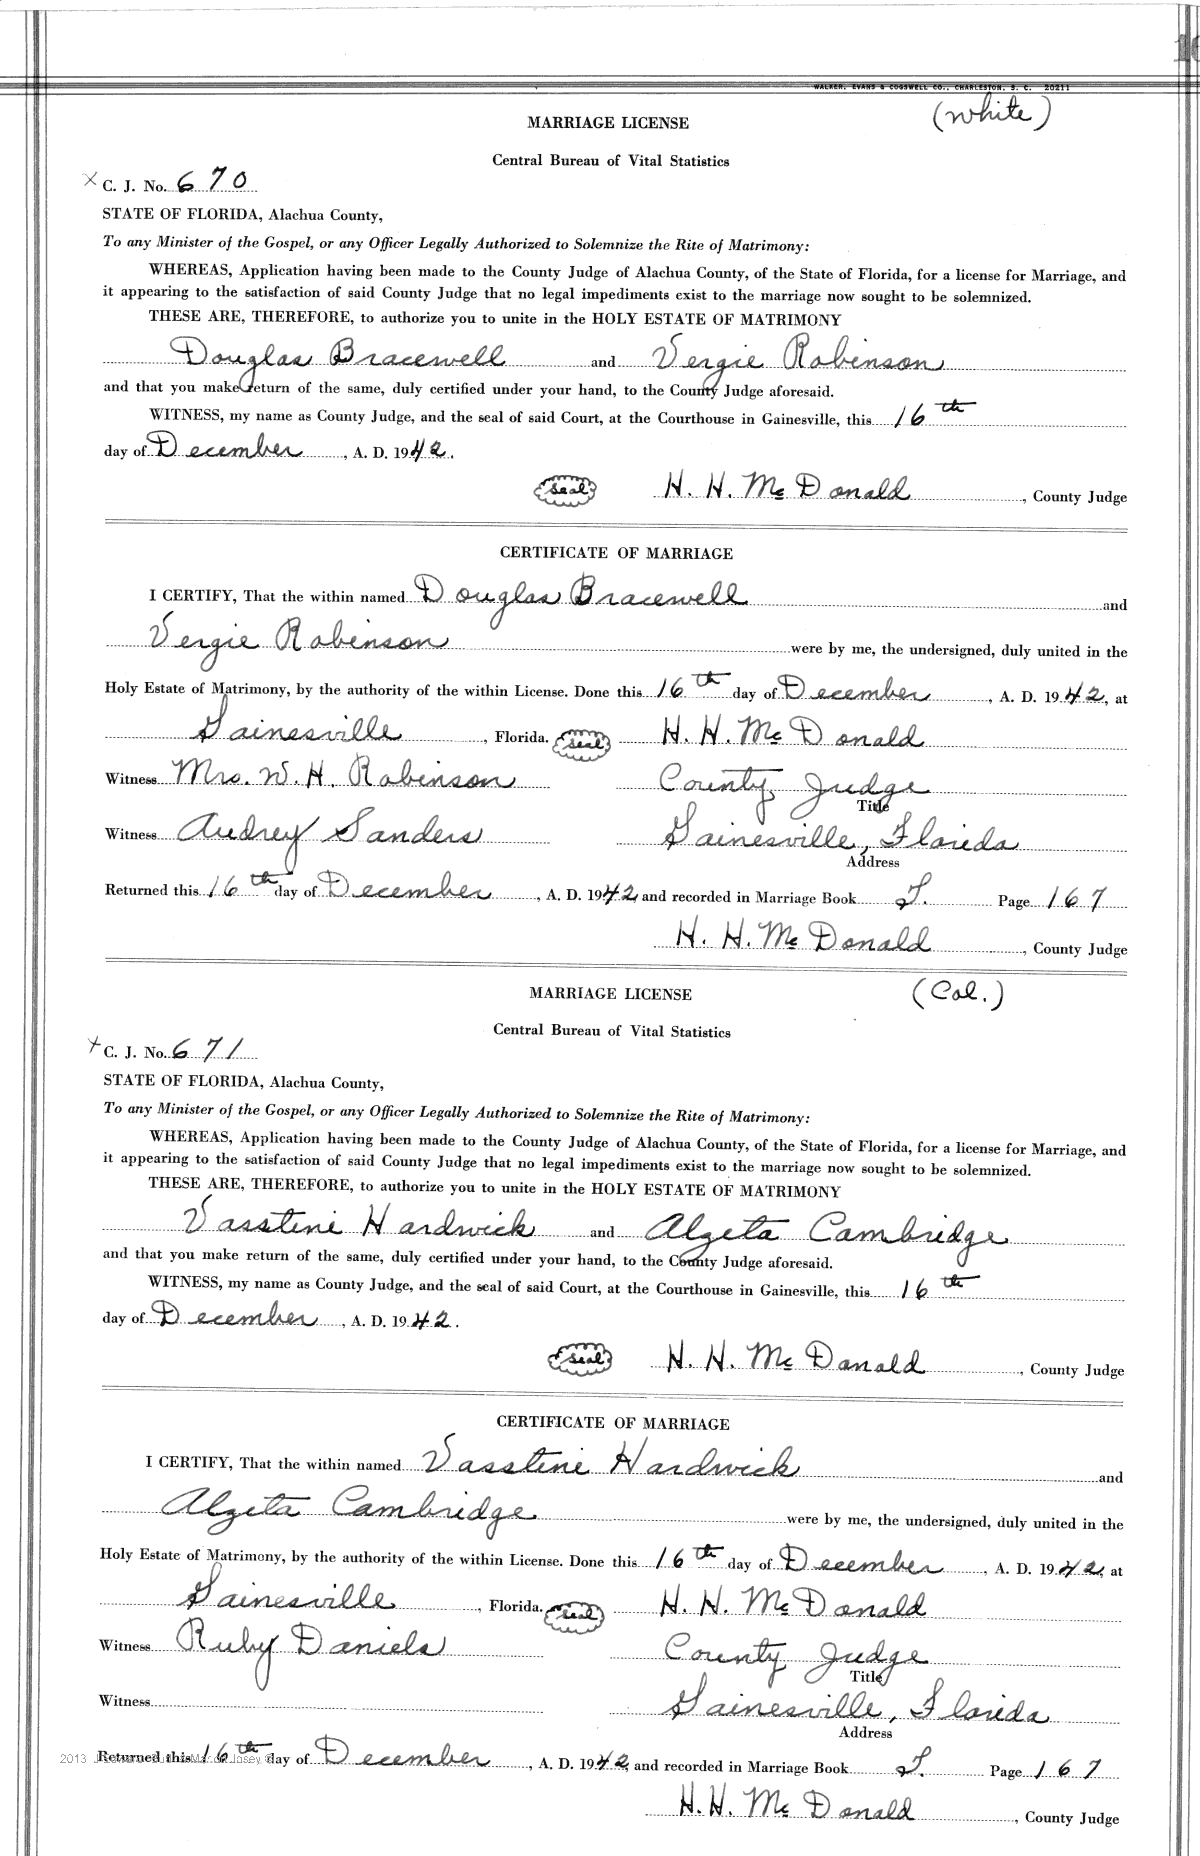 WALKER, EVANS & COGSWELL CO., CHARLESTON, S. C. 20211
(White)
MARRIAGE LICENSE
Central Bureau of Vital Statistics
X C. J. No. 670
STATE OF FLORIDA, Alachua County,
To any Minister of the Gospel, or any Officer Legally Authorized to Solemnize the Rite of Matrimony:
WHEREAS, Application having been made to the County Judge of Alachua County, of the State of Florida, for a license for Marriage, and
it appearing to the satisfaction of said County Judge that no legal impediments exist to the marriage now sought to be solemnized.
THESE ARE, THEREFORE, to authorize you to unite in the HOLY ESTATE OF MATRIMONY
Douglas Bracewell and Vergie Robinson
and that you make return of the same, duly certified under your hand, to the County Judge aforesaid.
WITNESS, my name as County Judge, and the seal of said Court, at the Courthouse in Gainesville, this 16th
day of December, A. D. 1942.
Seal H. H. McDonald, County Judge
CERTIFICATE OF MARRIAGE
I CERTIFY, That the within named Douglas Bracewell and
Vergie Robinson were by me, the undersigned, duly united in the
Holy Estate of Matrimony, by the authority of the within License. Done this 16th day of December, A. D. 1942, at
Gainesville, Florida. Seal H. H. McDonald
Witness Mrs. W. H. Robinson County Judge
Title
Witness Audrey Sanders Gainesville, Florida
Address
Returned this 16th day of December, A. D. 1942 and recorded in Marriage Book T. Page 167
H. H. McDonald, County Judge
MARRIAGE LICENSE (Col.)
Central Bureau of Vital Statistics
X C. J. No. 671
STATE OF FLORIDA, Alachua County,
To any Minister of the Gospel, or any Officer Legally Authorized to Solemnize the Rite of Matrimony:
WHEREAS, Application having been made to the County Judge of Alachua County, of the State of Florida, for a license for Marriage, and
it appearing to the satisfaction of said County Judge that no legal impediments exist to the marriage now sought to be solemnized.
THESE ARE, THEREFORE, to authorize you to unite in the HOLY ESTATE OF MATRIMONY
Vasstine Hardwick and Algeta Cambridge
and that you make return of the same, duly certified under your hand, to the County Judge aforesaid.
WITNESS, my name as County Judge, and the seal of said Court, at the Courthouse in Gainesville, this 16th
day of December, A. D. 1942.
Seal H. H. McDonald, County Judge
CERTIFICATE OF MARRIAGE
I CERTIFY, That the within named Vasstine Hardwick and
Algeta Cambridge were by me, the undersigned, duly united in the
Holy Estate of Matrimony, by the authority of the within License. Done this 16th day of December, A. D. 1942, at
Gainesville, Florida. Seal H. H. McDonald
Witness Ruby Daniels County Judge
Title
Witness Gainesville, Florida
Address
2013
Returned this 16th day of December, A. D. 1942 and recorded in Marriage Book T. Page 167
H. H. McDonald, County Judge